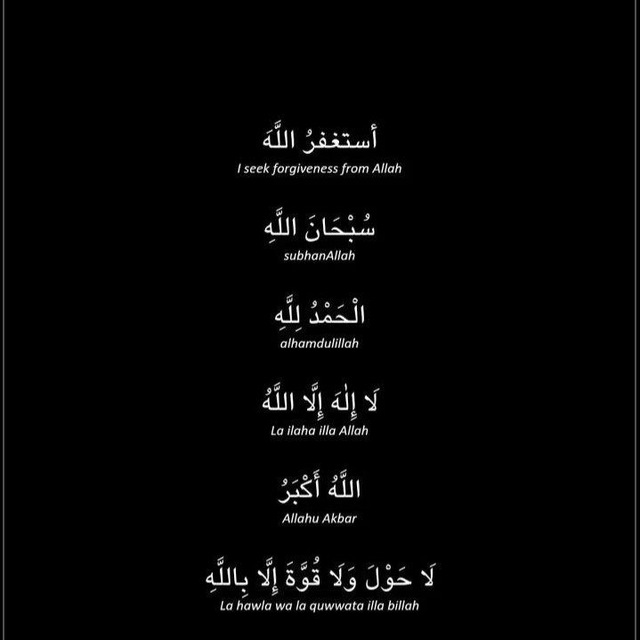 أستغفرُ اللَّهَ
I seek forgiveness from Allah
سُبْحَانَ اللَّهِ
subhanAllah
الْحَمْدُ لِلَّهِ
alhamdulillah
لَا إِلٰهَ إِلَّا اللَّهُ
La ilaha illa Allah
اللَّهُ أَكْبَرُ
Allahu Akbar
لَا حَوْلَ وَلَا قُوَّةَ إِلَّا بِاللَّهِ
La hawla wa la quwwata illa billah